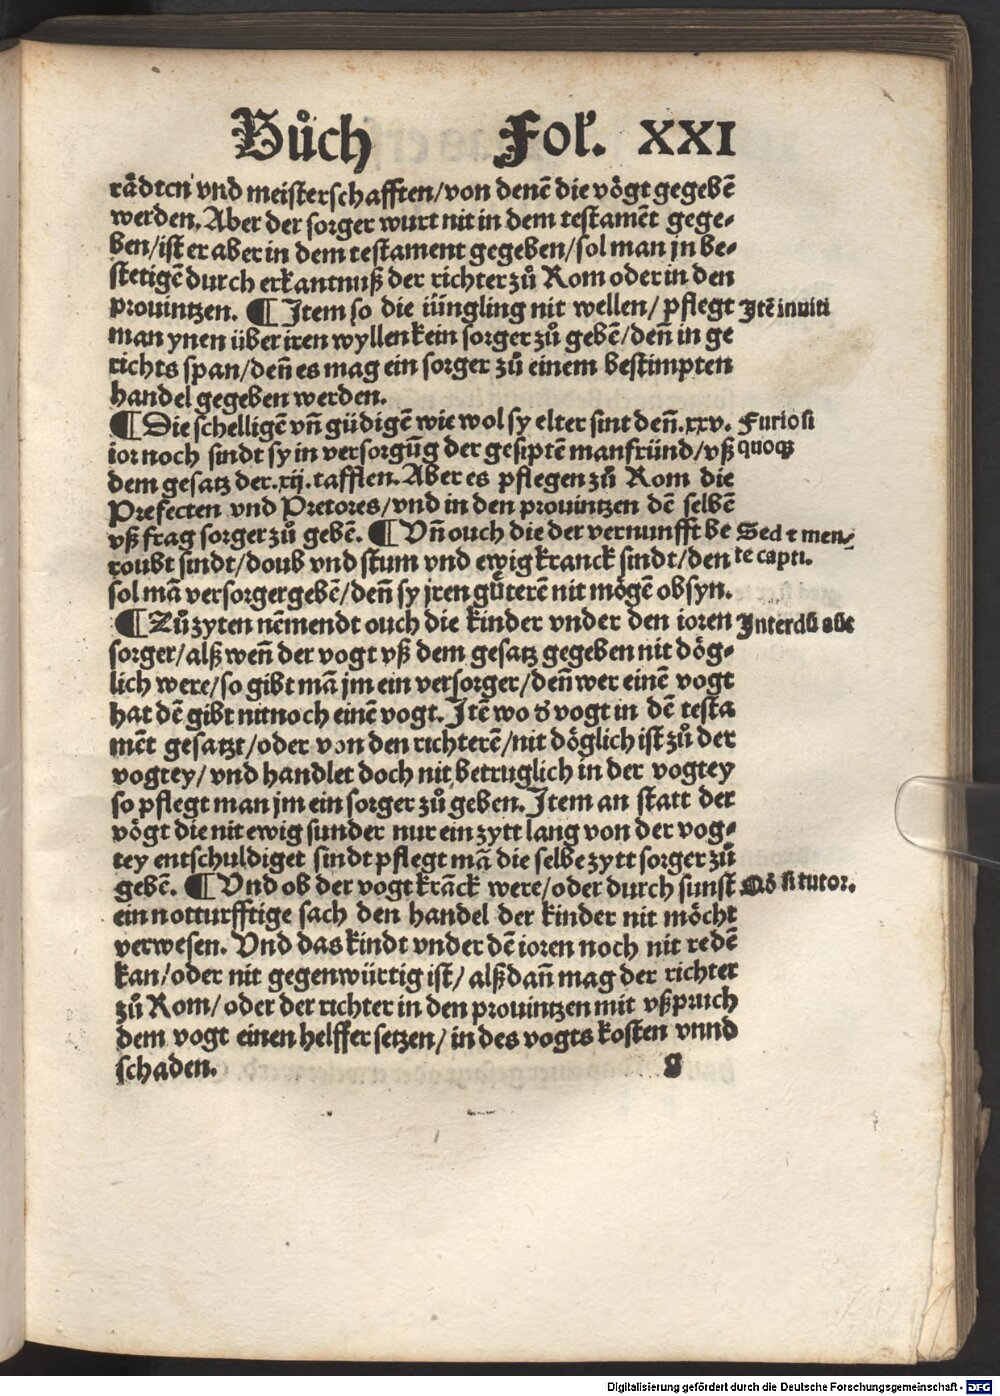 Bůch Fol'. XXI
rådten vnd meisterschafften/von denē die vögt gegebē
werden. Aber der sorger wurt nit in dem testamēt gege-
ben/ist er aber in dem testament gegeben/sol man jn be-
stetigē durch erkantnuß der richter zů Rom oder in den
prouintzen. ¶ Item so die iüngling nit wellen/ pflegt
Itē inuiti
man ynen über iren wyllen kein sorger zů gebē/deñ in ge
richts span/deñ es mag ein sorger zů einem bestimpten
handel gegeben werden.
¶ Die schelligē vñ güdigē wie wol sy elter sint deñ.xxv.
Furiosi
ior noch sindt sy in versorgūg der gesiptē manfründ/vß
quoqꝫ
dem gesatz der.xij.tafflen. Aber es pflegen zů Rom die
Prefecten vnd Pretores/vnd in den prouintzen dē selbē
vß frag sorger zů gebē. ¶ Vñ ouch die der vernunfft be
Sed ⁊ men-
roubt sindt/doub vnd stum vnd ewig kranck sindt/den
te capti.
sol mā versorger gebē/deñ sy jren gůterē nit mögē obsyn.
¶ Zů zyten nēmendt ouch die kinder vnder den ioren
Interdū aūt
sorger/alß weñ der vogt vß dem gesatz gegeben nit dög-
lich were/so gibt mā jm ein versorger/deñ wer einē vogt
hat dē gibt nit noch einē vogt. Itē wo ð vogt in dē testa
mēt gesatzt/oder von den richterē/nit döglich ist zů der
vogtey/ vnd handlet doch nit betruglich in der vogtey
so pflegt man jm ein sorger zů geben. Item an statt der
vögt die nit ewig sunder nur ein zytt lang von der vog-
tey entschuldiget sindt pflegt mā die selbe zytt sorger zů
gebē. ¶ Vnd ob der vogt krāck were/oder durch sunst
Qð si tutor.
ein notturfftige sach den handel der kinder nit möcht
verwesen. Vnd das kindt vnder dē ioren noch nit redē
kan/oder nit gegenwürtig ist/ alßdañ mag der richter
zů Rom/ oder der richter in den prouintzen mit vßpruch
dem vogt einen helffer setzen/ in des vogts kosten vnnd
schaden.
g
Digitalisierung gefördert durch die Deutsche Forschungsgemeinschaft - DFG